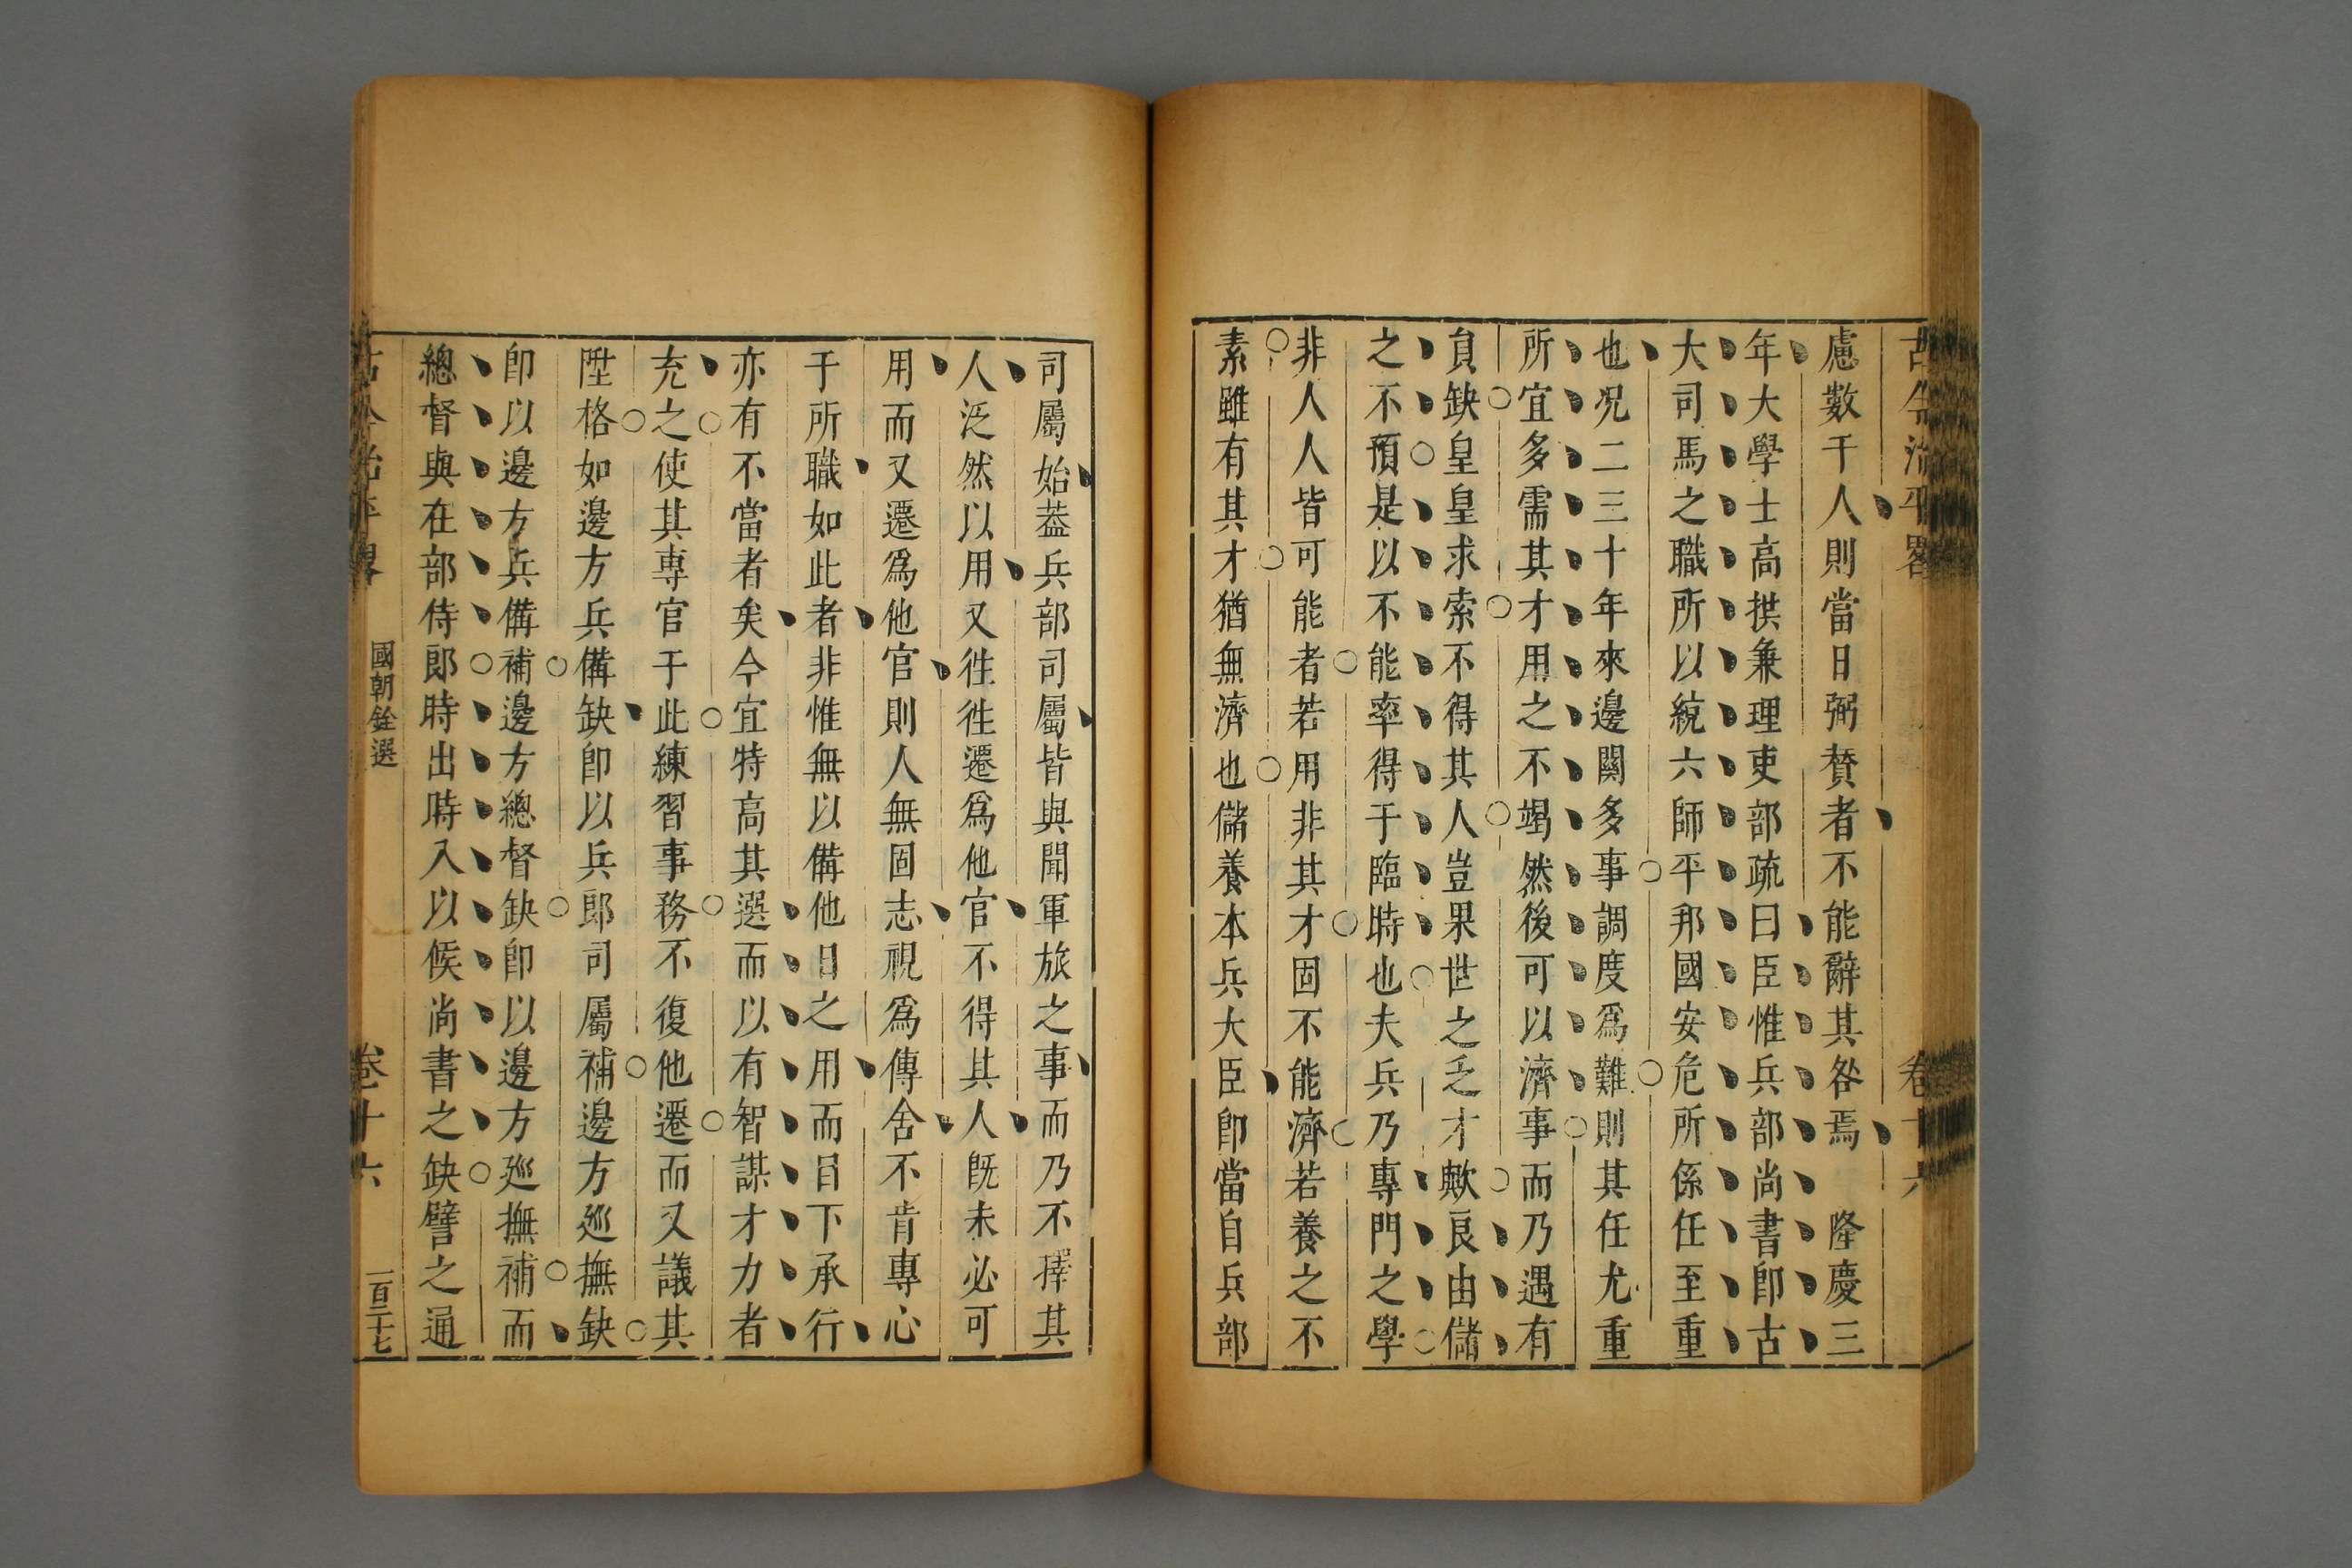 古今治平畧 卷十六
慮數千人則當日弼賛者不能辭其咎焉 隆慶三
年大學士高拱兼理吏部疏曰臣惟兵部尚書卽古
大司馬之職所以統六師平邦國安危所係任至重
也況二三十年來邊關多事調度爲難則其任尤重
所宜多需其才用之不竭然後可以濟事而乃遇有
員缺皇皇求索不得其人豈果世之乏才歟良由儲
之不預是以不能率得于臨時也夫兵乃專門之學
非人人皆可能者若用非其才固不能濟若養之不
素雖有其才猶無濟也儲養本兵大臣卽當自兵部
司屬始葢兵部司屬皆與聞軍旅之事而乃不擇其
人泛然以用又徃徃遷爲他官不得其人旣未必可
用而又遷爲他官則人無固志視爲傳舍不肯專心
于所職如此者非惟無以備他日之用而目下承行
亦有不當者矣今宜特高其選而以有智謀才力者
充之使其專官于此練習事務不復他遷而又議其
陞格如邊方兵備缺卽以兵郎司屬補邊方廵撫缺
卽以邊方兵備補邊方總督缺卽以邊方廵撫補而
總督與在部侍郎時出時入以候尚書之缺譬之通
古今治平畧 國朝銓選 卷十六 一百三十七